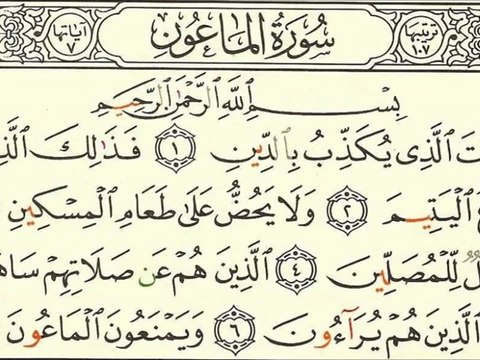 ترتيبها ١٠٧ سُورَةُ الْمَاعُونِ آياتها ٧
بِسْمِ اللَّهِ الرَّحْمَٰنِ الرَّحِيمِ
تَ الَّذِي يُكَذِّبُ بِالدِّينِ ۝١ فَذَٰلِكَ الَّذِ
الْيَتِيمَ ۝٢ وَلَا يَحُضُّ عَلَىٰ طَعَامِ الْمِسْكِينِ
لٌ لِّلْمُصَلِّينَ ۝٤ الَّذِينَ هُمْ عَن صَلَاتِهِمْ سَاهُ
الَّذِينَ هُمْ يُرَاءُونَ ۝٦ وَيَمْنَعُونَ الْمَاعُونَ